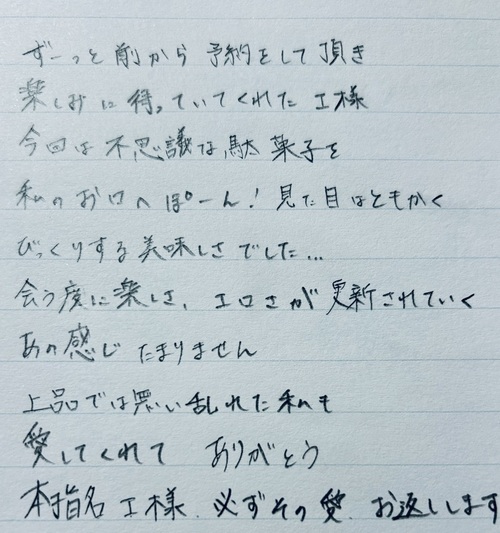 ずーっと前から 予約をして頂き
楽しみに待っていてくれた I様
今回は不思議な駄菓子を
私のお口へぽーん！見た目はともかく
びっくりする美味しさでした...
会う度に楽しさ、エロさが更新されていく
あの感じ たまりません
上品では無い乱れた私も
愛してくれて ありがとう
本指名 I様 必ずその愛 お返しします